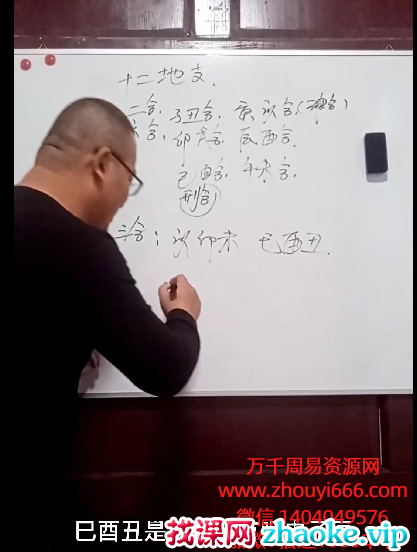 十二地支.
二合. 子丑合. 寅亥合(破合)
六合. 卯戌合 辰酉合.
巳申合. 午未合.
刑合
三合: 亥卯未 巳酉丑.
万千周易资源网
www.zhouyi666.com
微信 1404949576
巳酉丑是
找课网 zhaoke.vip